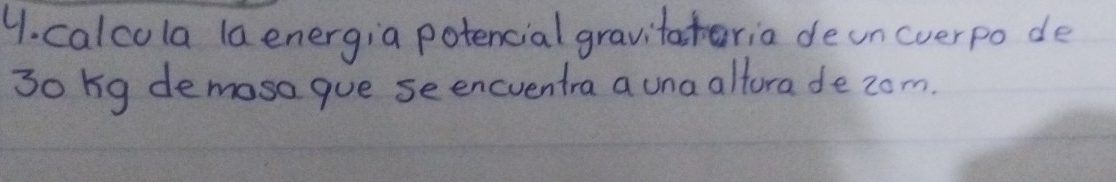 4. calcula la energia potencial gravitatoria de un cuerpo de
30 kg de masa que se encuentra a una altura de 20m.